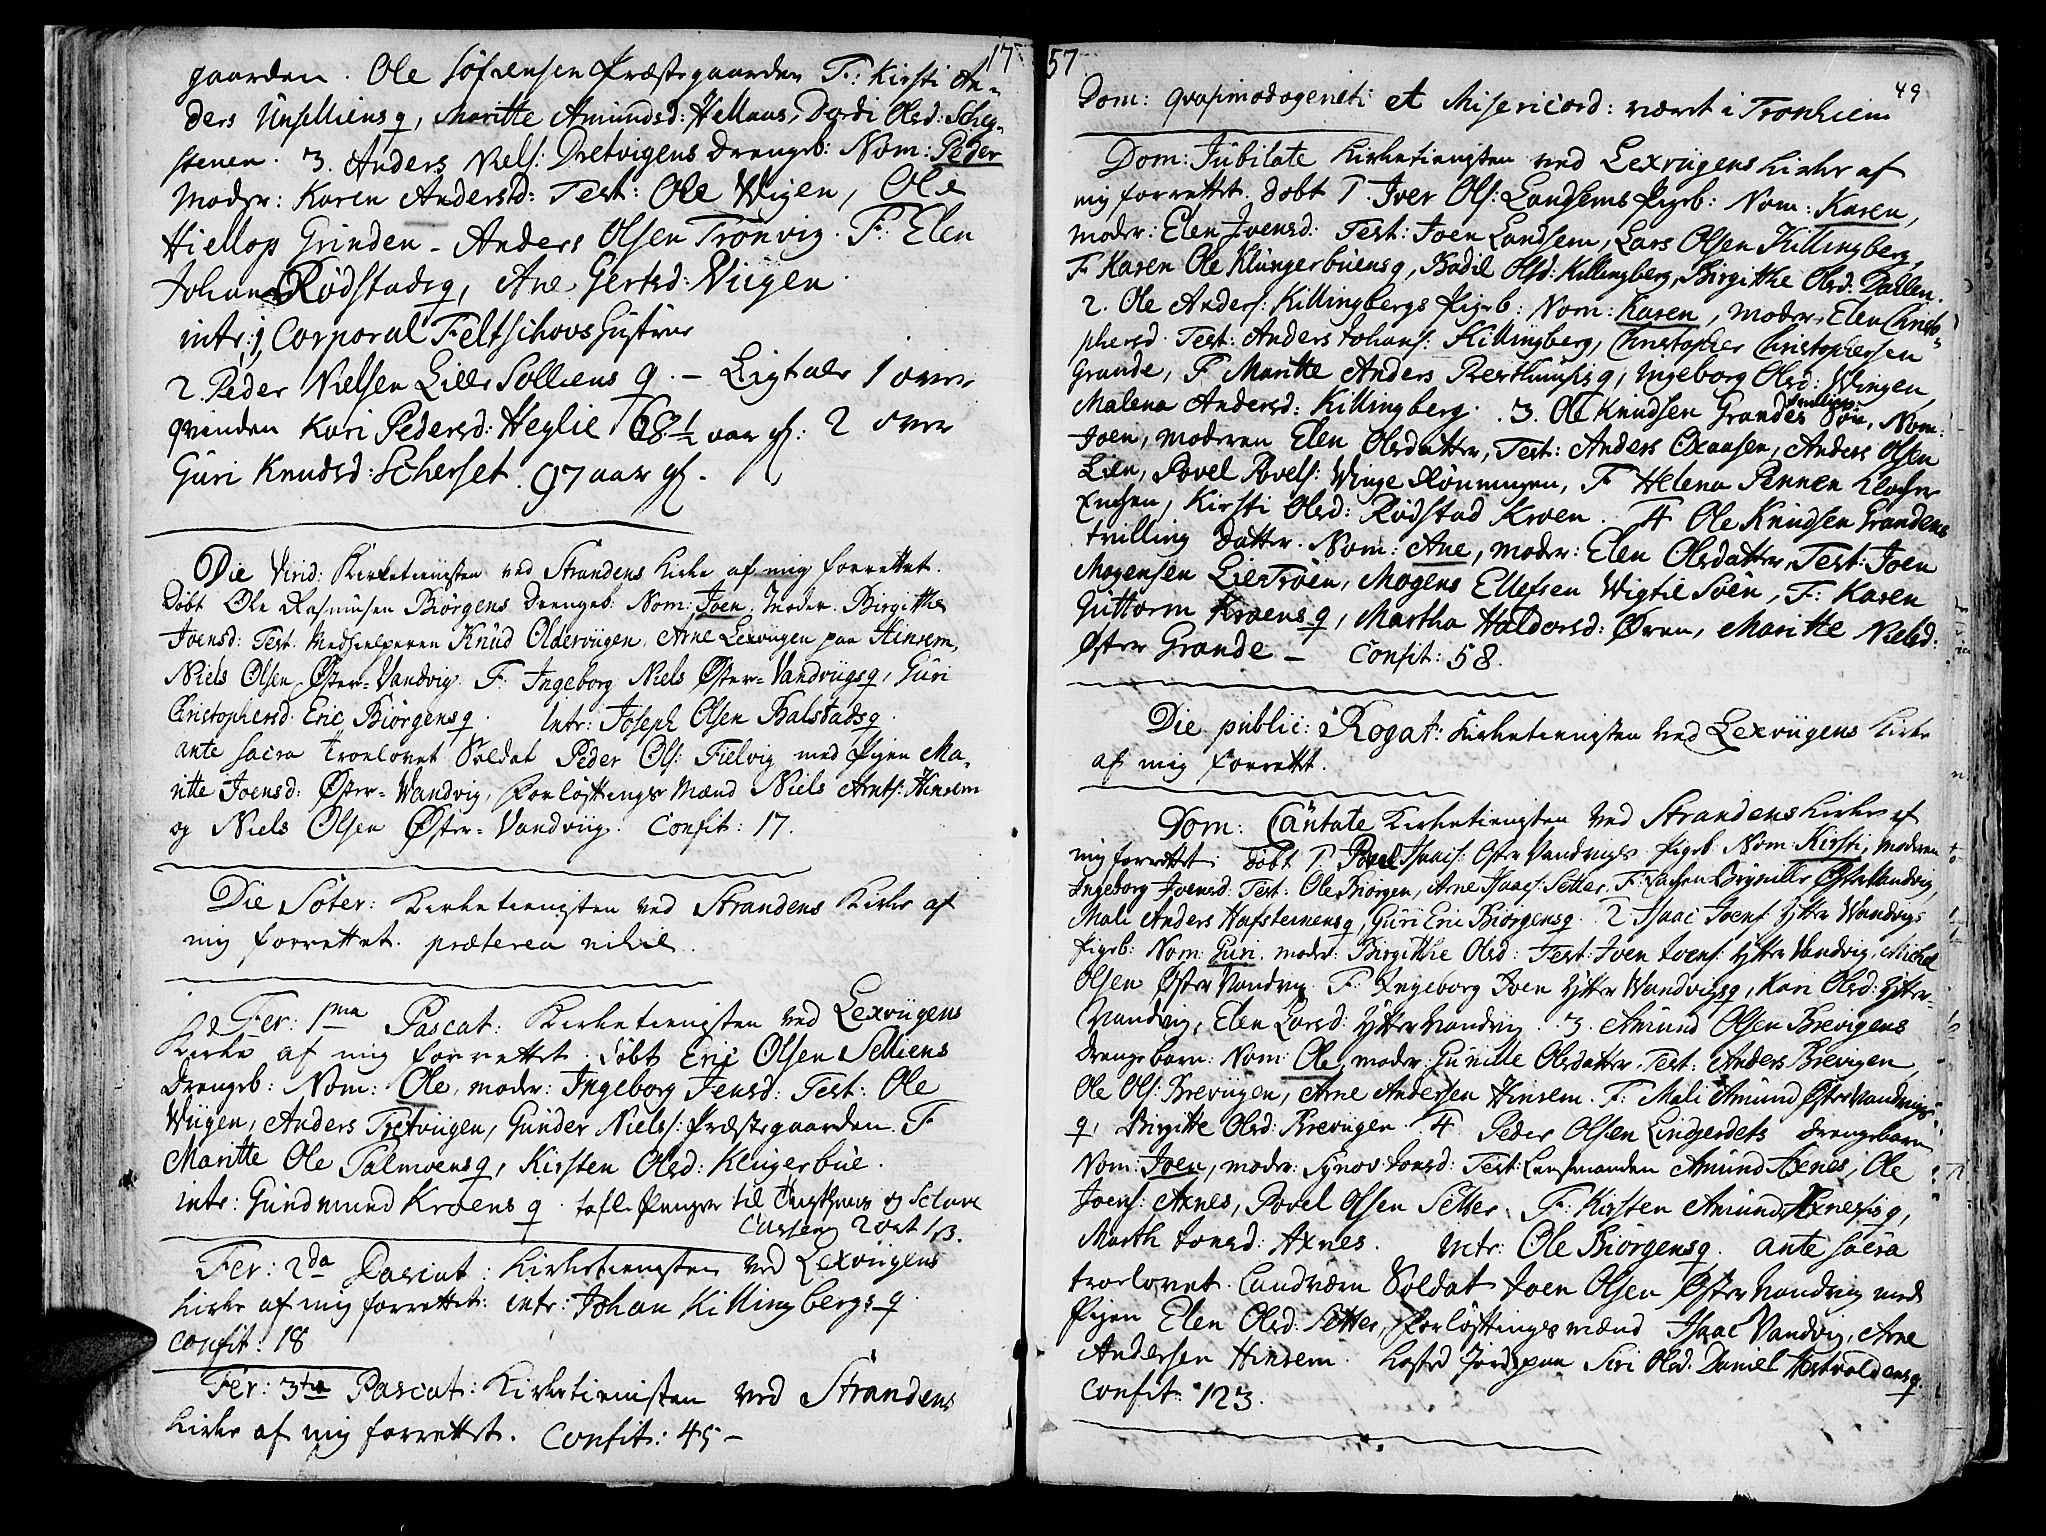 17
gaarden. Ole Söfrensen Præstegaarden F: Kirsti An-
ders Unselliens q, Maritte Amundsd: Hellaas, Dordi Olsd: Schej-
stenen. 3. Anders Niels: Dretvigens drengeb: Nom: Peder
Moder: Karen Andersd: Test: Ole Wigen, Ole
Hiellop Grinden - Anders Olsen Trönvig. F: Elen
Johan Rödstads q, Ane Gertsd: Viigen.
intr: 1, Corporal Feltschovs Hustrue
2. Peder Nielsen Lille Solliens q. - Ligtale 1 over
qvinden Kari Pedersd: Heglie 68½ aar gl: 2 over
Guri Knudsd: Scherset. 97 aar gl.
Die Virid: Kirketienisten ved Strandens Kirke af mig forrettet.
Döbt Ole Rasmusen Biörgens drengeb: Nom: Joen. Moder. Birgitthe
Joensd: Test. Medhielperen Knud Oldervügen, Arne Lexvügen paa Hinsem,
Niels Olsen Öster-Vandvig. F: Ingeborg Niels Öster-Vandvigs q, Guri
Christophersd. Eric Biörgens q. Intr: Joseph Olsen Balstads q.
ante sacra troelovet Soldat Peder Ols: Fielvig med Pigen Ma-
ritte Joensd: Öster-Wandvig, Forlöftnings Mænd Niels Arnts: Hinsem
og Niels Olsen Öster-Vandviig. Confit: 17.
Die Soter: Kirketienisten ved Strandens Kirke af
mig forrettet. præterea nihil.
Fer: 1ma Pascat: Kirketienisten ved Lexvügens
Kirke af mig forrettet. döbt Eric Olsen Selliens
Drengeb: Nom: Ole, moder: Ingeborg Jensd: Test: Ole
Wiigen, Anders Tretvügen, Gunder Niels: Præstegaarden. F
Maritte Ole Palmoens q, Kirsten Olsd: Klüngerbüe.
intr: Gundmund Kroens q. tafle Penger til og Sclave
Cassen 2 ort 1 ß.
Fer: 2da Pascat: Kirketienisten ved Lexvügens
Kirke af mig forrettet: intr: Johan Killingbergs q.
Confit: 18
Fer: 3tia Pascat: Kirketienisten ved Strandens
Kirke af mig forrettet. Confit: 45 -
57
49
Dom: qvasimodogeniti et Misericord: været i Tronhiem
Dom: Jubilate Kirketienisten ved Lexvügens Kirke af
mig forrettet. döbt 1. Iver Ols: Landsems Pigeb: Nom: Karen,
Moder: Elen Joensd: Test: Joen Landsem, Lars Olsen Killingberg,
F Karen Ole Klüngerbüens q, Bodil Olsd: Killingberg, Birgitthe Olsd: Dallen.
2. Ole Anders: Killingbergs Pigeb: Nom: Karen, moder Elen Christo-
phersd. Test: Anders Johans: Killingberg, Christopher Christophersen
Grande, F Maritte Anders Presthuus q, Ingeborg Olsd: Wingen,
Malena Andersd: Killingberg. 3. Ole Knudsen Grandes tvilling Sön, Nom:
Joen, moderen Elen Olsdatter, Test: Anders Claussen, Anders Olsen
Lien, Povel Povels: Winge Rönningen, F Helena Pennen Klocher
Engsen, Kirsti Olsd: Rödstad Kroen. 4 Ole Knudsen Grandens
tvilling datter. Nom: Ane, moder: Elen Olsdatter, Test: Joen
Mogensen Lietröen, Mogens Ellefsen Wigtil Söen, F: Karen
Guttorm Kroens q, Martha Haldorsd: Øren, Maritte Nielsd:
Öster Grande - Confit: 58.
Die public: Rogat: Kirketienisten ved Lexvügens Kirke
af mig forrettet.
Dom: Cantate Kirketienisten ved Strandens Kirke af
mig forrettet. döbt 1. Povel Isacs: Öster Vandvigs Pigeb: Nom: Kirsti, moderen
Ingeborg Joensd: Test: Ole Biörgen, Arne Isacs: Setter, F: Öster Vandvig,
Mali Anders Hafstennens q, Guri Eric Biörgens q. 2 Isaac Joens: Ytter Wandvigs
Pigeb: Nom: Guri. moder: Birgitthe Olsd: Test: Joen Joens: Ytter Wandvig, Michel
Olsen Öster Vandvig. F: Ingeborg Joen Ytter Wandvigs q, Kari Olsd: Ytter-
Vandvig, Elen Larsd: Ytter Vandvig. 3. Amund Olsen Brevigens
drengebarn: Nom: Ole, moder Gunille Olsdatter, Test: Anders Brevigen,
Ole Ols: Brevügen, Arne Andersen Hinsem. F: Mali Amund Öster Vandvigs
q, Birgitte Olsd: Brevügen. 4 Peder Olsen Lindjerdets drengebarn
Nom: Joen, moder: Synov Jonsd: Test: Lensmanden Amund Axnes, Ole
Joens: Axnes, Povel Olsen Setter, F: Kirsten Amund Axnesis q,
Marth Jonsd: Axnes. intr: Ole Biörgens q. ante sacra
troelovet. Landværn Soldat Joen Olsen Öster Vandvig med
Pigen Elen Olsd: Setter, Forlöftningsmænd Isaac Vandvig, Arne
Andersen Hinsem. kasted Jord paa Siri Olsd. Daniel q.
Confit: 123.